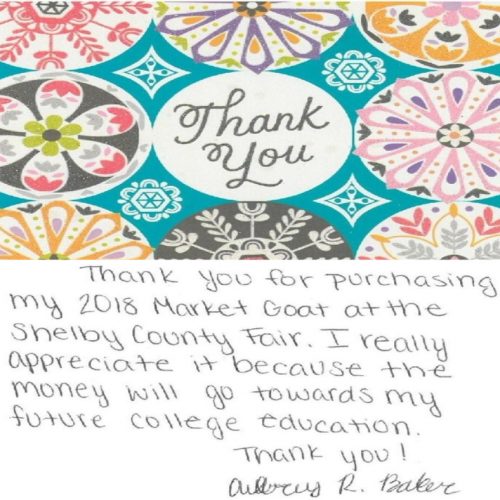 Thank
You
Thank you for purchasing
my 2018 Market Goat at the
Shelby County Fair. I really
appreciate it because the
money will go towards my
future college education.
Thank you!
R. Baker